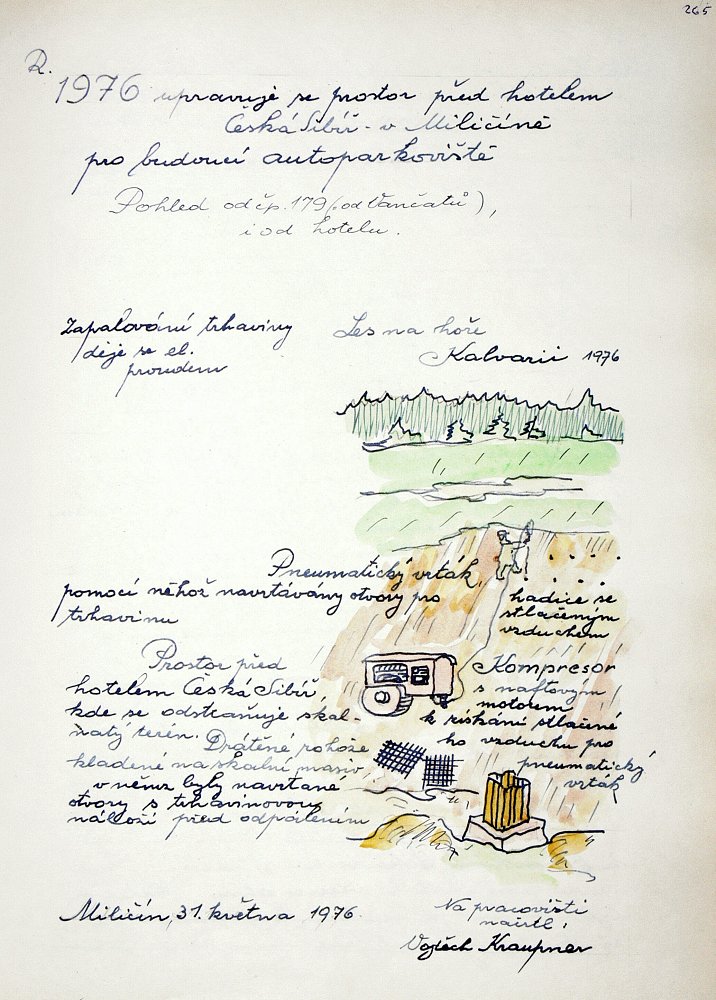 265
R.
1976 upravuje se prostor před hotelem
Česká Sibiř - v Miličíně
pro budoucí autoparkoviště
Pohled od čp. 179 (od Vančatů),
i od hotelu.
Zapalování trhaviny
děje se el.
proudem
Les na hoře
Kalvarii 1976
Pneumatický vrták,
pomocí něhož navrtávány otvory pro
trhavinu
hadice se
stlačeným
vzduchem
Prostor před
hotelem Česká Sibiř,
kde se odstraňuje skal-
natý terén. Drátěné rohože
kladené na skalní masiv,
v němž byly navrtané
otvory s trhavinovou
náloží před odpálením
Kompresor
s naftovým
motorem
k získání stlačené
ho vzduchu pro
pneumatický
vrták
Miličín, 31. května 1976.
Na pracovišti
načrtl:
Vojtěch Kraupner